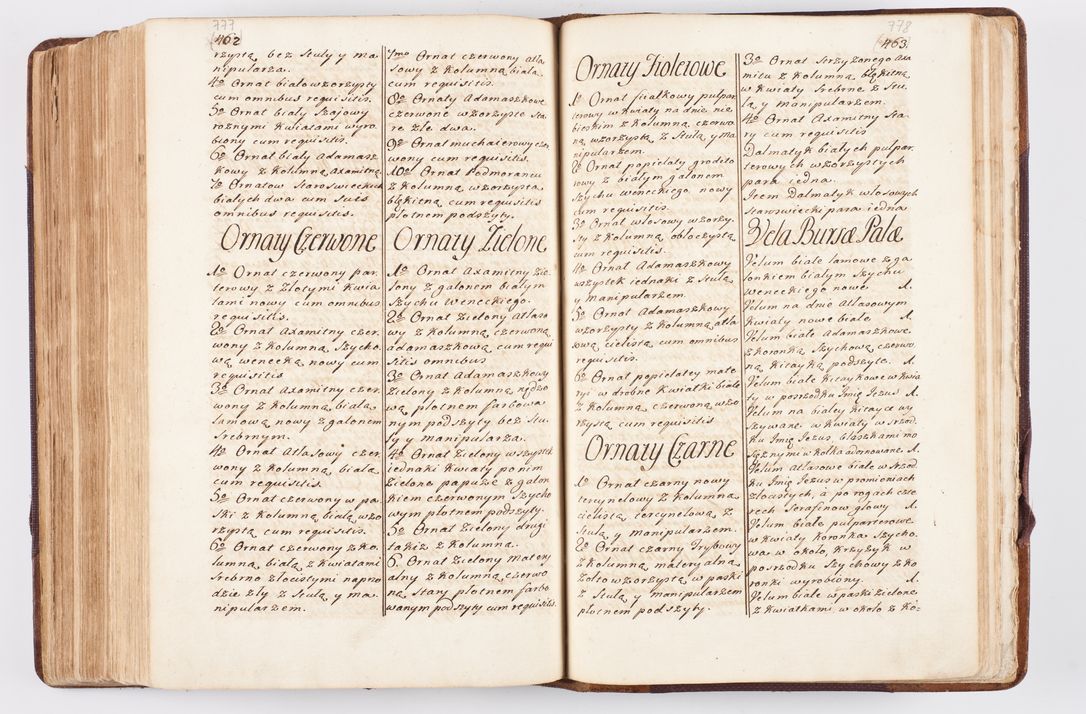 777
462
rzystą bez stuły y ma-
nipularza.
4o Ornat biało wzorzysty
cum omnibus requisitis.
5o Ornat biały Szajowy
rożnymi Kwiatami wyro-
biony cum requisitis.
6o Ornat biały Adamasz-
kowy z Kolumną Axamitną
7o Ornatow Staroswieckich
białych dwa cum suis
omnibus requisitis.
Ornaty Czerwone
1o Ornat czerwony par-
terowy z Złotymi Kwia-
tami nowy cum omnibus
requisitis.
2o Ornat Axamitny czer-
wony z Kolumną Szycho-
wą wenecką nowy cum
requisitis
3o Ornat Axamitny czer-
wony z Kolumną białą
lamową nowy z galonem
Srebrnym.
4o Ornat Atłasowy czer-
wony z Kolumną białą
cum requisitis.
5o Ornat czerwony w pa-
ski z Kolumną białą wzo-
rzystą cum requisitis.
6o Ornat czerwony z Ko-
lumną białą z Kwiatami
Srebrno złocistymi napro-
dzie zły z Stułą y ma-
nipularzem.
7mo Ornat czerwony atła-
sowy z Kolumną białą
cum requisitis.
8o Ornaty Adamaszkowe
czerwone wzorzyste sta-
re złe dwa.
9o Ornat muchaierowy czer-
wony cum requisitis.
10o Ornat Podmorancu
z Kolumną wzorzystą
błękitną cum requisitis
płotnem podszyty.
Ornaty Zielone
1o Ornat Axamitny Zie-
lony z galonem białym
Szychu Weneckiego.
2o Ornat Zielony Atłaso-
wy z Kolumną czerwoną
adamaszkową cum requi-
sitis omnibus
3o Ornat Adamaszkowy
Zielony z Kolumną rądzo-
wą płotnem farbowa-
nym podszyty bez Stu-
ły y manipularza.
4o Ornat Zielony wszystek
iednaki Kwiaty po nim
Zielone papuże z galon-
kiem czerwonym Szycho-
wym płotnem podszyty.
5o Ornat Zielony drugi
takiż z Kolumną.
6. Ornat Zielony Matery-
alny z Kolumną czerwo-
ną stary płotnem farbo-
wanym podszyty cum requisitis.
778
463
Ornaty Fioletowe
1o Ornat fiałkowy pulpar-
terowy w Kwiaty na dnie nie-
bieskim z Kolumną czerwo-
ną wzorzystą z Stułą y Ma-
nipularzem.
2o Ornat popielaty grodito-
rowy z białym galonem
Szychu weneckiego nowy
cum requisitis.
3o Ornat włosowy wzorzy-
sty z Kolumną obłoczystą
cum requisitis.
4o Ornat Adamaszkowy
wszystek iednaki z Stułą
y Manipularzem.
5o Ornat Adamaszkowy
wzorzysty z Kolumną atła-
sową cielistą cum omnibus
requisitis.
6o Ornat popielatey mate-
ryi w drobne Kwiatki białe
z Kolumną czerwoną wzo-
rzystą cum requisitis
Ornaty Czarne
1o Ornat czarny nowy
tercynelowy z Kolumną
cielistą tercynelową z
Stułą y manipularzem.
2o Ornat czarny Trybowy
z Kolumną materyalną
żołto wzorzystą w paski
z Stułą y manipularzem
płotnem podszyty.
3o Ornat Strzyżonego Axa-
mitu z Kolumną błękitną
w Kwiaty Srebrne z Stu-
łą y Manipularzem.
4o Ornat Axamitny Sta-
ry cum requisitis
Dalmatyk białych pulpar-
terowych wzorzystych
para iedna.
Item Dalmatyk włosowych
staroswiecki para iedna
Vela Bursæ Palæ
Velum białe lamowe z ga-
lonkiem białym Szychu
weneckiego nowe 1.
Velum na dnie Atłasowym
Kwiaty nowe białe 1.
Velum białe Adamaszkowe
z koronką Szychową czerwo-
ną Kitayką podszyte. 1.
Velum białe Kitaykowe w Kwia-
ty w posrzodku Imię Jezus 1.
Velum na białey Kitayce wy-
szywane w Kwiaty w srzod-
ku Imię Jezus blaszkami mo-
siężnymi w Kołka adornowane 1.
Velum Atłasowe białe w srzod-
ku Imię Jezus w promieniach
złocistych, a po rogach czte-
rech Serafinow głowy 1.
Velum białe pulparterowe
w Kwiaty Koronka Szycho-
wa w około, Krzyżyk w
posrzodku Szychowy z Ko-
ronki wyrobiony. 1.
Velum białe w paski Zielone
z Kwiatkami, w około z Ko-